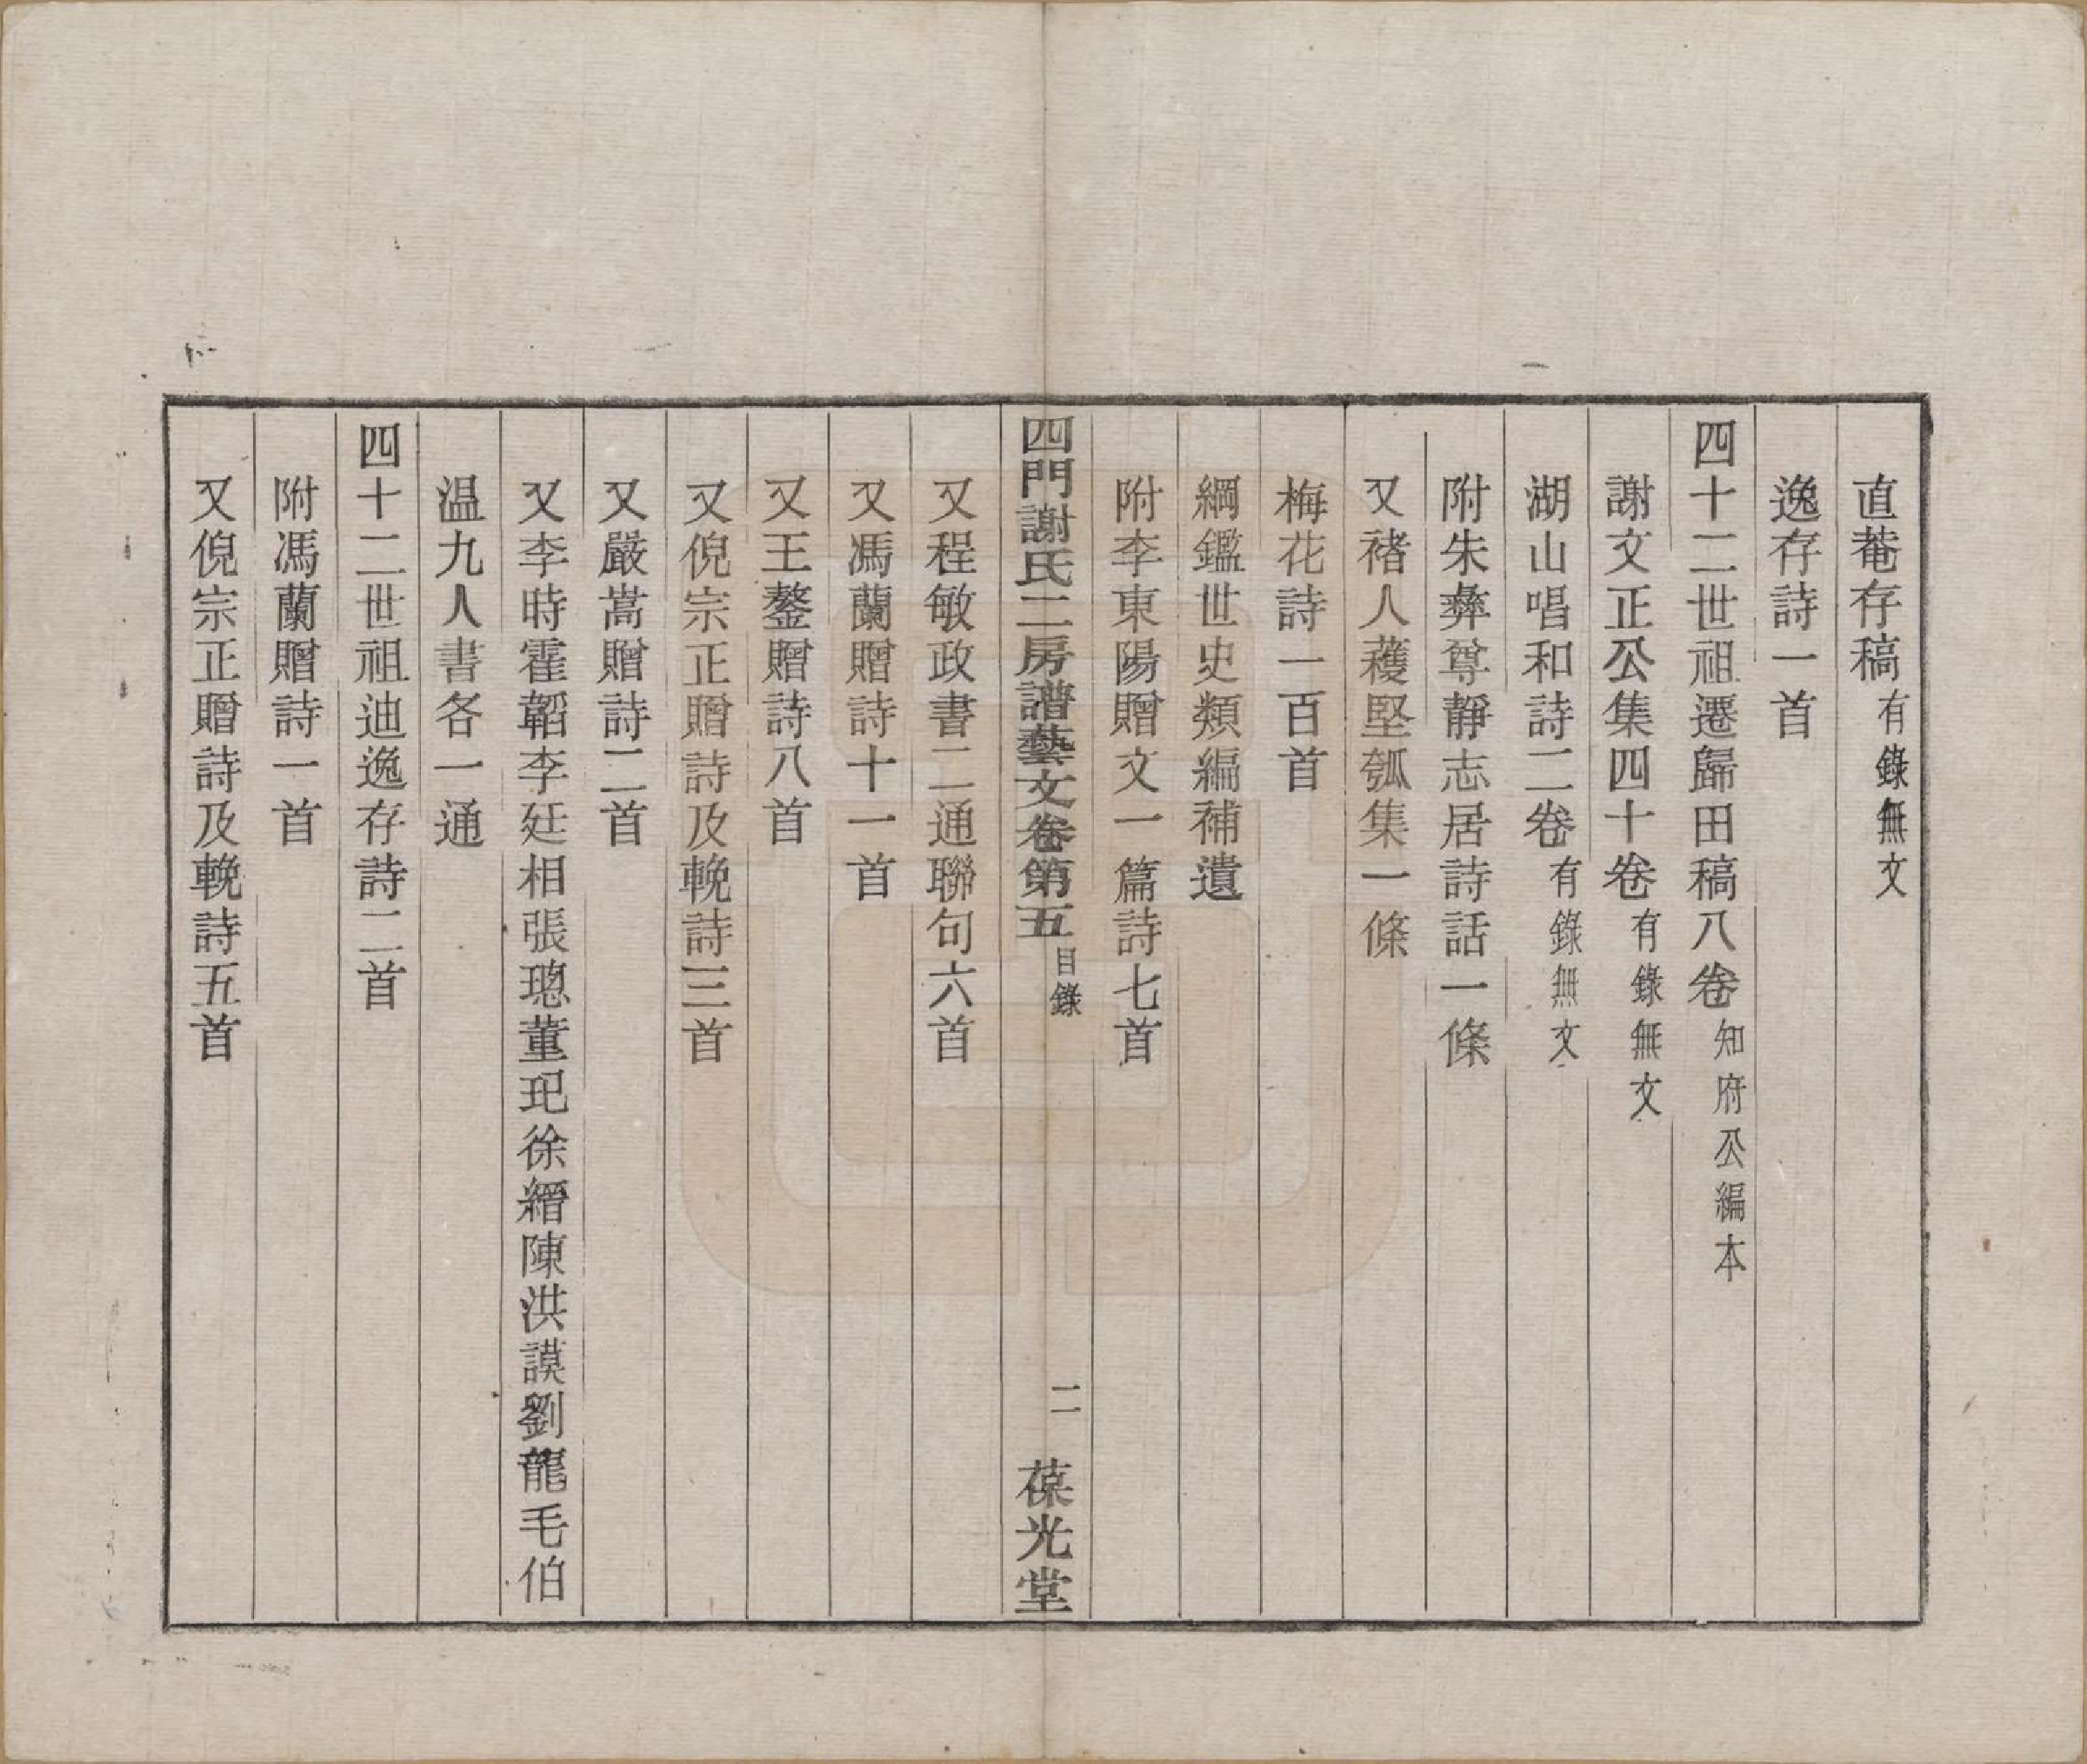 直菴存稿有錄無文
逸存詩一首
四十二世祖遷歸田稿八卷知府公編本
謝文正公集四十卷有錄無文
湖山唱和詩二卷有錄無文
附朱彝尊靜志居詩話一條
又褚人穫堅瓠集一條
梅花詩一百首
綱鑑世史類編補遺
附李東陽贈文一篇詩七首
四門謝氏二房譜藝文卷第五目錄 二 葆光堂
又程敏政書二通聯句六首
又馮蘭贈詩十一首
又王鏊贈詩八首
又倪宗正贈詩及輓詩三首
又嚴嵩贈詩二首
又李時霍韜李廷相張璁董玘徐縉陳洪謨劉龍毛伯
温九人書各一通
四十二世祖迪逸存詩二首
附馮蘭贈詩一首
又倪宗正贈詩及輓詩五首